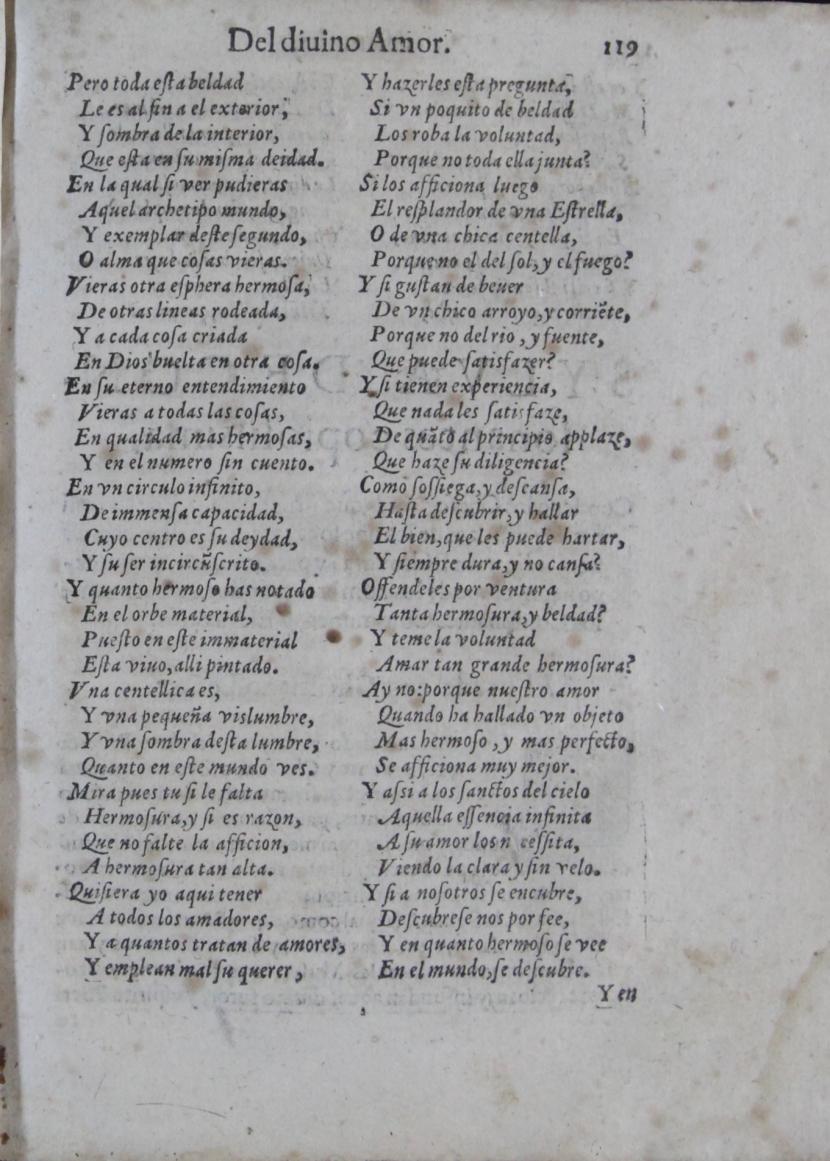 Del diuino Amor. 119
Pero toda eſta beldad
Le es al fin a el exterior,
Y ſombra de la interior,
Que eſta en ſu miſma deidad.
En la qual ſi ver pudieras
Aquel archetipo mundo,
Y exemplar deſte ſegundo,
O alma que coſas vieras.
Vieras otra eſphera hermoſa,
De otras lineas rodeada,
Y a cada coſa criada
En Dios buelta en otra coſa.
En ſu eterno entendimiento
Vieras a todas las coſas,
En qualidad mas hermoſas,
Y en el numero ſin cuento.
En vn circulo infinito,
De immenſa capacidad,
Cuyo centro es ſu deydad,
Y ſu ſer incircũſcrito.
Y quanto hermoſo has notado
En el orbe material,
Pueſto en eſte immaterial
Eſta viuo, alli pintado.
Vna centellica es,
Y vna pequeña vislumbre,
Y vna ſombra deſta lumbre,
Quanto en eſte mundo ves.
Mira pues tu ſi le falta
Hermoſura, y ſi es razon,
Que no falte la afficion,
A hermoſura tan alta.
Quiſiera yo aqui tener
A todos los amadores,
Y a quantos tratan de amores,
Y emplean mal ſu querer,
Y hazerles eſta pregunta,
Si vn poquito de beldad
Los roba la voluntad,
Porque no toda ella junta?
Si los afficiona luego
El reſplandor de vna Eſtrella,
O de vna chica centella,
Porque no el del ſol, y el fuego?
Y ſi guſtan de beuer
De vn chico arroyo, y corriẽte,
Porque no del rio, y fuente,
Que puede ſatisfazer?
Y ſi tienen experiencia,
Que nada les ſatisfaze,
De quãto al principio applaze,
Que haze ſu diligencia?
Como ſoſſiega, y deſcanſa,
Haſta deſcubrir, y hallar
El bien, que les puede hartar,
Y ſiempre dura, y no canſa?
Offendeles por ventura
Tanta hermoſura, y beldad?
Y teme la voluntad
Amar tan grande hermoſura?
Ay no: porque nueſtro amor
Quando ha hallado vn objeto
Mas hermoſo, y mas perfecto,
Se afficiona muy mejor.
Y aſsi a los ſanctos del cielo
Aquella eſſencia infinita
A ſu amor los n ceſſita,
Viendo la clara y ſin velo.
Y ſi a noſotros ſe encubre,
Deſcubreſe nos por fee,
Y en quanto hermoſo ſe vee
En el mundo, ſe deſcubre.
Y en